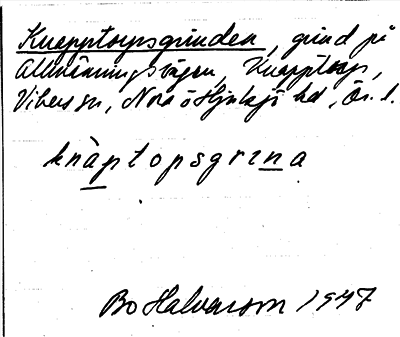 Knapptorpsgrinden, grind på
Allmänningsvägen, Knapptorp,
Viby sn, N o Hjulsjö hd, Ör. l.
knäptopsgrina
Bo Halvarson 1947